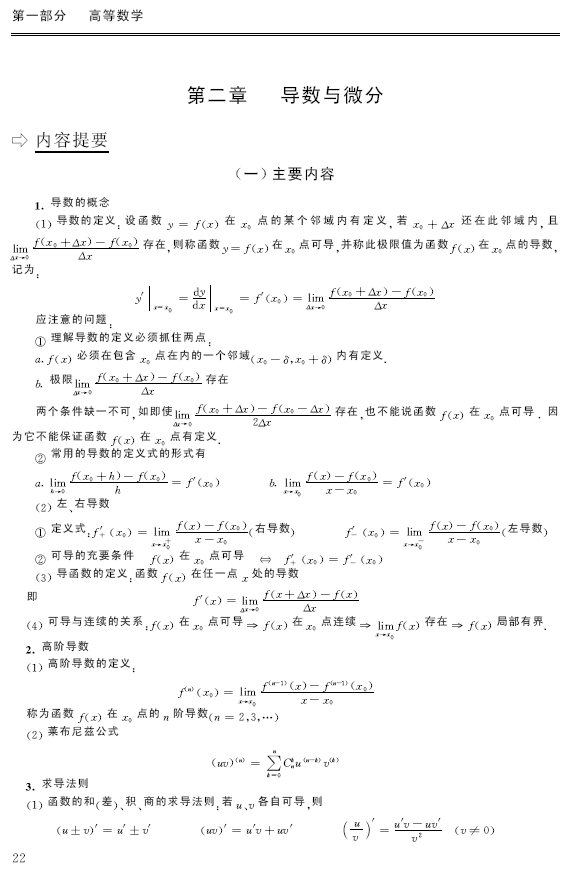 第一部分 高等数学
第二章 导数与微分
⇨ 内容提要
（一）主要内容
1. 导数的概念
(1) 导数的定义：设函数 y = f(x) 在 x₀ 点的某个邻域内有定义，若 x₀ + Δx 还在此邻域内，且
lim_{Δx→0} (f(x₀ + Δx) − f(x₀))/Δx 存在，则称函数 y = f(x) 在 x₀ 点可导，并称此极限值为函数 f(x) 在 x₀ 点的导数，
记为：
y′|_{x=x₀} = dy/dx|_{x=x₀} = f′(x₀) = lim_{Δx→0} (f(x₀ + Δx) − f(x₀))/Δx
应注意的问题：
① 理解导数的定义必须抓住两点：
a. f(x) 必须在包含 x₀ 点在内的一个邻域(x₀ − δ, x₀ + δ) 内有定义.
b. 极限 lim_{Δx→0} (f(x₀ + Δx) − f(x₀))/Δx 存在
两个条件缺一不可，如即使 lim_{Δx→0} (f(x₀ + Δx) − f(x₀ − Δx))/2Δx 存在，也不能说函数 f(x) 在 x₀ 点可导．因
为它不能保证函数 f(x) 在 x₀ 点有定义.
② 常用的导数的定义式的形式有
a. lim_{h→0} (f(x₀ + h) − f(x₀))/h = f′(x₀) b. lim_{x→x₀} (f(x) − f(x₀))/(x − x₀) = f′(x₀)
(2) 左、右导数
① 定义式：f′₊(x₀) = lim_{x→x₀⁺} (f(x) − f(x₀))/(x − x₀) (右导数) f′₋(x₀) = lim_{x→x₀⁻} (f(x) − f(x₀))/(x − x₀) (左导数)
② 可导的充要条件 f(x) 在 x₀ 点可导 ⇔ f′₊(x₀) = f′₋(x₀)
(3) 导函数的定义：函数 f(x) 在任一点 x 处的导数
即 f′(x) = lim_{Δx→0} (f(x + Δx) − f(x))/Δx
(4) 可导与连续的关系：f(x) 在 x₀ 点可导 ⇒ f(x) 在 x₀ 点连续 ⇒ lim_{x→x₀} f(x) 存在 ⇒ f(x) 局部有界.
2. 高阶导数
(1) 高阶导数的定义：
f⁽ⁿ⁾(x₀) = lim_{x→x₀} (f⁽ⁿ⁻¹⁾(x) − f⁽ⁿ⁻¹⁾(x₀))/(x − x₀)
称为函数 f(x) 在 x₀ 点的 n 阶导数(n = 2,3,…)
(2) 莱布尼兹公式
(uv)⁽ⁿ⁾ = ∑_{k=0}^{n} C_n^k u^{(n−k)} v^{(k)}
3. 求导法则
(1) 函数的和(差)、积、商的求导法则：若 u、v 各自可导，则
(u ± v)′ = u′ ± v′ (uv)′ = u′v + uv′ (u/v)′ = (u′v − uv′)/v² (v ≠ 0)
22